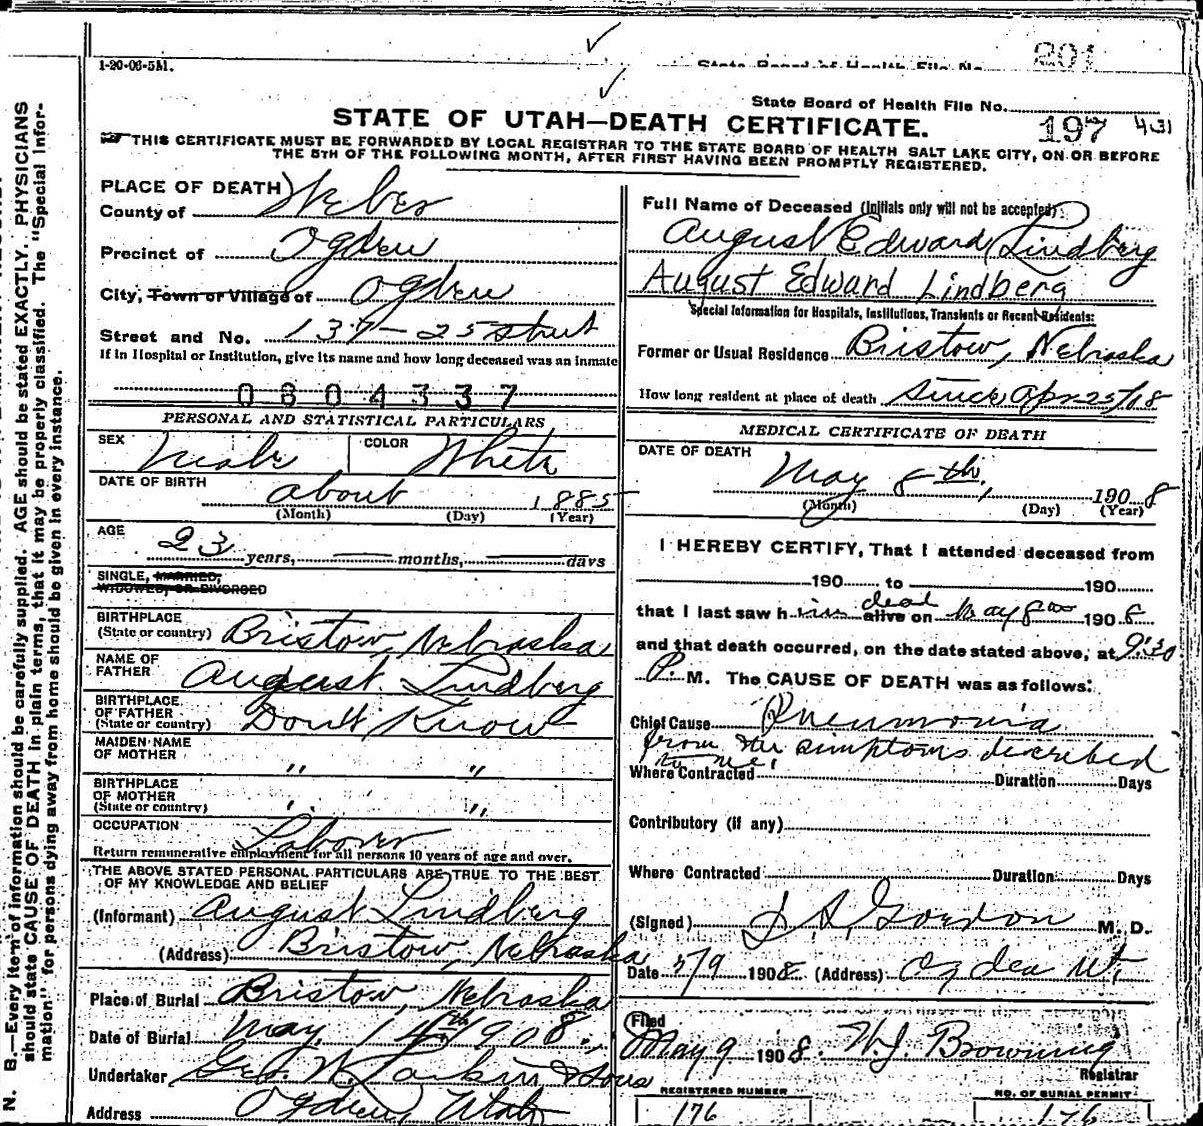 201
1-20-06-5M.
State Board of Health File No.
State Board of Health File No. 197 431
STATE OF UTAH—DEATH CERTIFICATE.
THIS CERTIFICATE MUST BE FORWARDED BY LOCAL REGISTRAR TO THE STATE BOARD OF HEALTH SALT LAKE CITY, ON OR BEFORE
THE 5TH OF THE FOLLOWING MONTH, AFTER FIRST HAVING BEEN PROMPTLY REGISTERED.
PLACE OF DEATH
County of Weber
Precinct of Ogden
City, Town or Village of Ogden
Street and No. 137 - 25 Street
If in Hospital or Institution, give its name and how long deceased was an inmate
0804337
PERSONAL AND STATISTICAL PARTICULARS
SEX Male COLOR White
DATE OF BIRTH about 1885
(Month) (Day) (Year)
AGE
23 years, months, days
SINGLE, MARRIED,
WIDOWED, OR DIVORCED
BIRTHPLACE
(State or country) Bristow, Nebraska
NAME OF
FATHER August Lindberg
BIRTHPLACE
OF FATHER
(State or country) Don't Know
MAIDEN NAME
OF MOTHER " "
BIRTHPLACE
OF MOTHER
(State or country) " "
OCCUPATION Laborer
Return remunerative employment for all persons 10 years of age and over.
THE ABOVE STATED PERSONAL PARTICULARS ARE TRUE TO THE BEST
OF MY KNOWLEDGE AND BELIEF
(Informant) August Lindberg
(Address) Bristow, Nebraska
Place of Burial Bristow, Nebraska
Date of Burial May, 14th 1908.
Undertaker Geo. W. Larkin & Sons
Address Ogden, Utah
Full Name of Deceased (Initials only will not be accepted):
August Edward Lindberg
August Edward Lindberg
Special Information for Hospitals, Institutions, Transients or Recent Residents:
Former or Usual Residence Bristow, Nebraska
How long resident at place of death Since Apr 25/08
MEDICAL CERTIFICATE OF DEATH
DATE OF DEATH
May 8th, 1908
(Month) (Day) (Year)
I HEREBY CERTIFY, That I attended deceased from
190 to 190
that I last saw him dead alive on May 8 1908
and that death occurred, on the date stated above, at 9:30
P. M. The CAUSE OF DEATH was as follows:
Chief Cause Pneumonia
from the simptoms described
to me.
Where Contracted Duration Days
Contributory (if any)
Where Contracted Duration Days
(Signed) Gordon M. D.
Date 5/9 1908 (Address) Ogden Ut.
Filed
May 9 1908. W. J. Browning
Registrar
REGISTERED NUMBER
176
NO. OF BURIAL PERMIT
176
N. B.—Every item of information should be carefully supplied. AGE should be stated EXACTLY. PHYSICIANS
should state CAUSE OF DEATH in plain terms, that it may be properly classified. The "Special Infor-
mation" for persons dying away from home should be given in every instance.